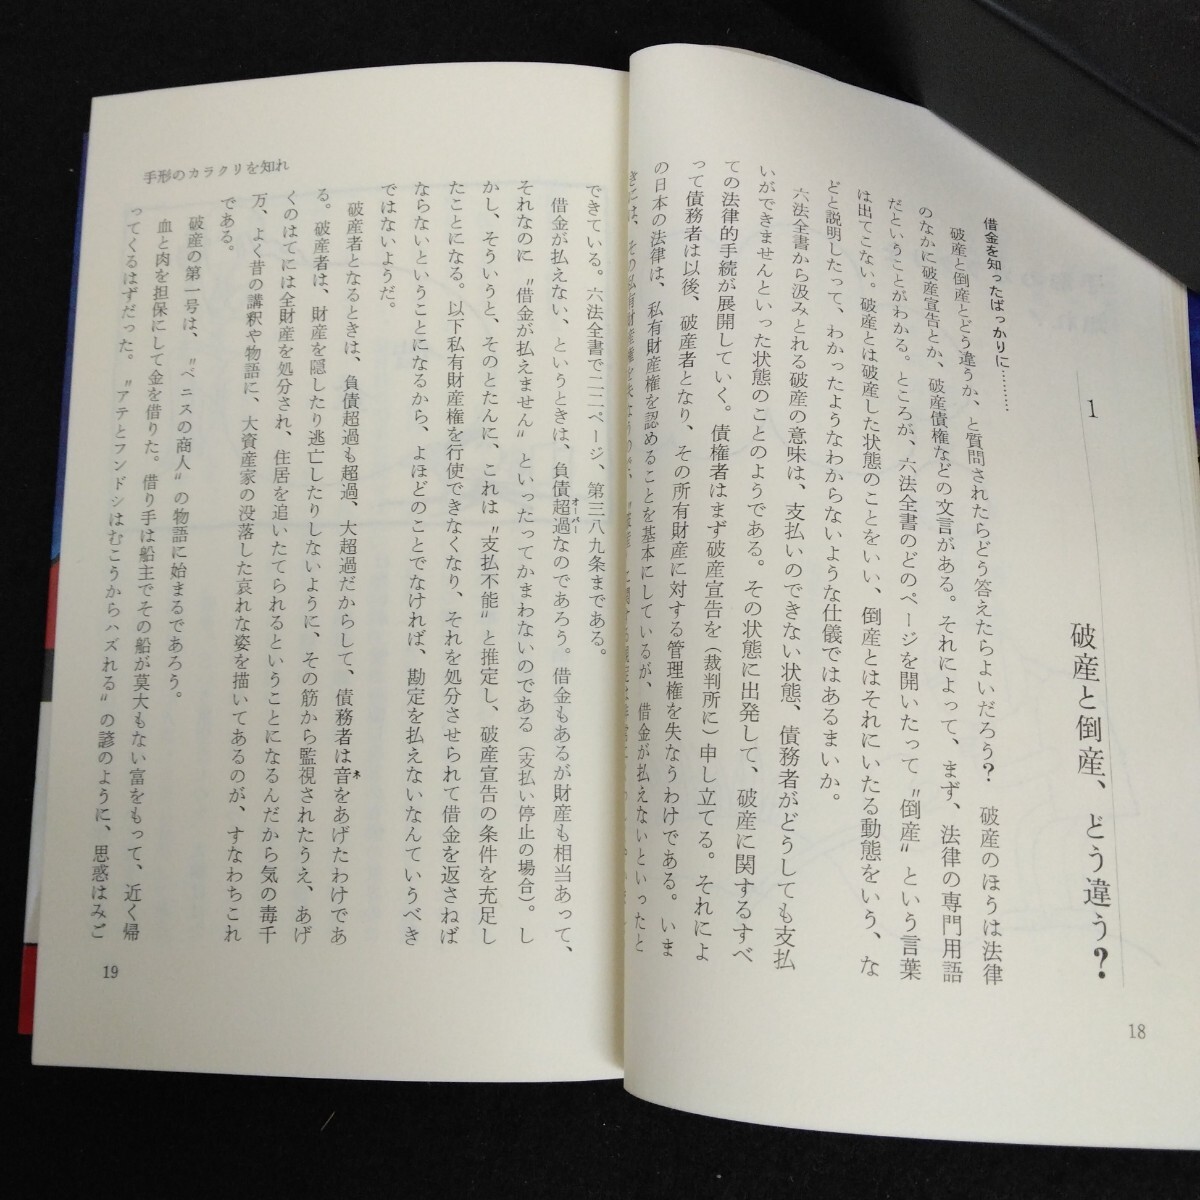 1
破産と倒産、どう違う？
借金を知ったばっかりに………
破産と倒産とどう違うか、と質問されたらどう答えたらよいだろう？　破産のほうは法律
のなかに破産宣告とか、破産債権などの文言がある。それによって、まず、法律の専門用語
だということがわかる。ところが、六法全書のどのページを開いたって〝倒産〟という言葉
は出てこない。破産とは破産した状態のことをいい、倒産とはそれにいたる動態をいう、な
どと説明したって、わかったようなわからないような仕儀ではあるまいか。
六法全書から汲みとれる破産の意味は、支払いのできない状態、債務者がどうしても支払
いができませんといった状態のことのようである。その状態に出発して、破産に関するすべ
ての法律的手続が展開していく。債権者はまず破産宣告を（裁判所に）申し立てる。それによ
って債務者は以後、破産者となり、その所有財産に対する管理権を失なうわけである。いま
の日本の法律は、私有財産権を認めることを基本にしているが、借金が払えないといったと
18
手形のカラクリを知れ
できている。六法全書で二二ページ、第三八九条まである。
借金が払えない、というときは、負債超過なのであろう。借金もあるが財産も相当あって、
オーバー
それなのに〝借金が払えません〟といったってかまわないのである（支払い停止の場合）。し
かし、そういうと、そのとたんに、これは〝支払不能〟と推定し、破産宣告の条件を充足し
たことになる。以下私有財産権を行使できなくなり、それを処分させられて借金を返さねば
ならないということになるから、よほどのことでなければ、勘定を払えないなんていうべき
ではないようだ。
破産者となるときは、負債超過も超過、大超過だからして、債務者は音をあげたわけであ
ネ
る。破産者は、財産を隠したり逃亡したりしないように、その筋から監視されたうえ、あげ
くのはてには全財産を処分され、住居を追いたてられるということになるんだから気の毒千
万、よく昔の講釈や物語に、大資産家の没落した哀れな姿を描いてあるのが、すなわちこれ
である。
破産の第一号は、〝ベニスの商人〟の物語に始まるであろう。
血と肉を担保にして金を借りた。借り手は船主でその船が莫大もない富をもって、近く帰
ってくるはずだった。〝アテとフンドシはむこうからハズれる〟の諺のように、思惑はみご
19